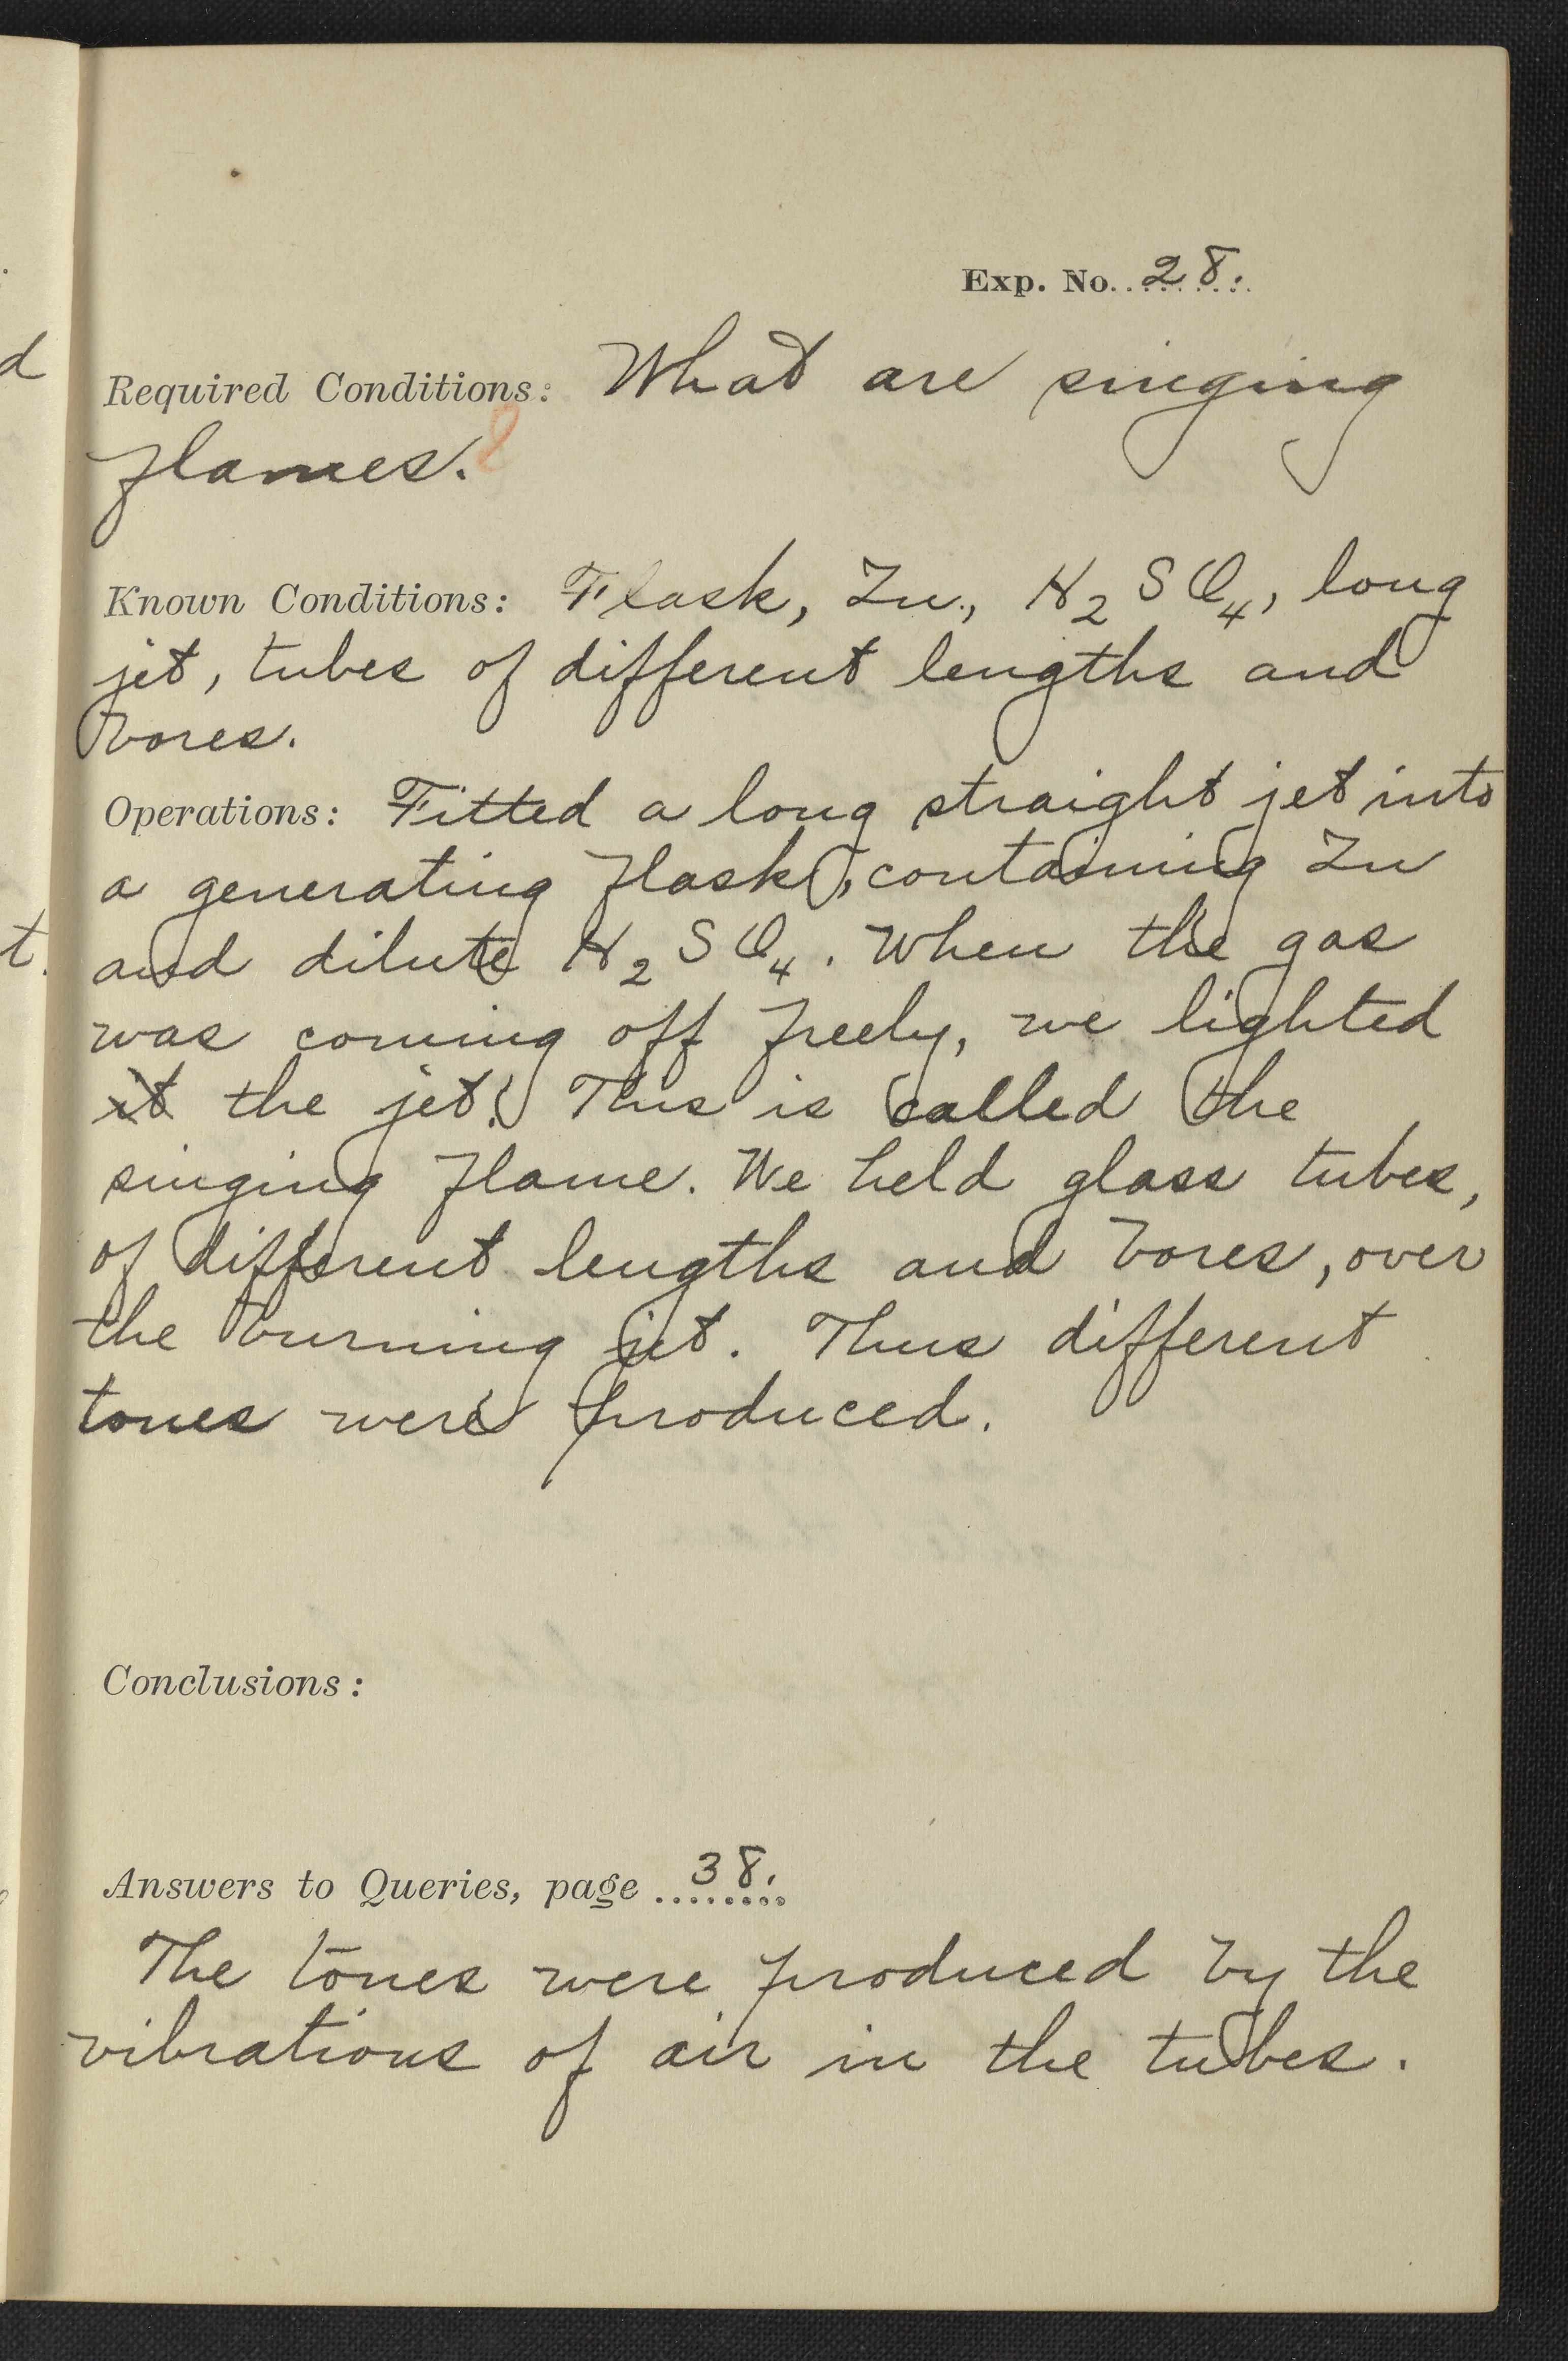 Exp. No. 28.
d
Required Conditions: What are singing
flames.?
Known Conditions: Flask, Zn., H2SO4, long
jet, tubes of different lengths and
bores.
Operations: Fitted a long straight jet into
a generating flask, containing Zn
t. and dilute H2SO4. When the gas
was coming off freely, we lighted
it the jet. This is called the
singing flame. We held glass tubes,
of different lengths and bores, over
the burning jet. Thus different
tones were produced.
Conclusions:
Answers to Queries, page 38.
The tones were produced by the
vibrations of air in the tubes.